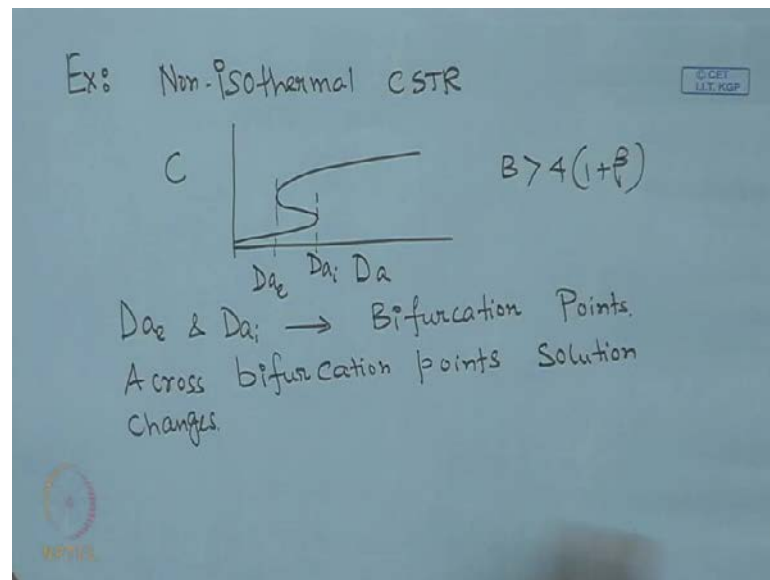 Ex: Non-isothermal CSTR
© CET
I.I.T. KGP
C
B > 4(1+β)
Da_e Da_i Da
Da_e & Da_i → Bifurcation Points.
Across bifurcation points Solution
Changes.
NPTEL